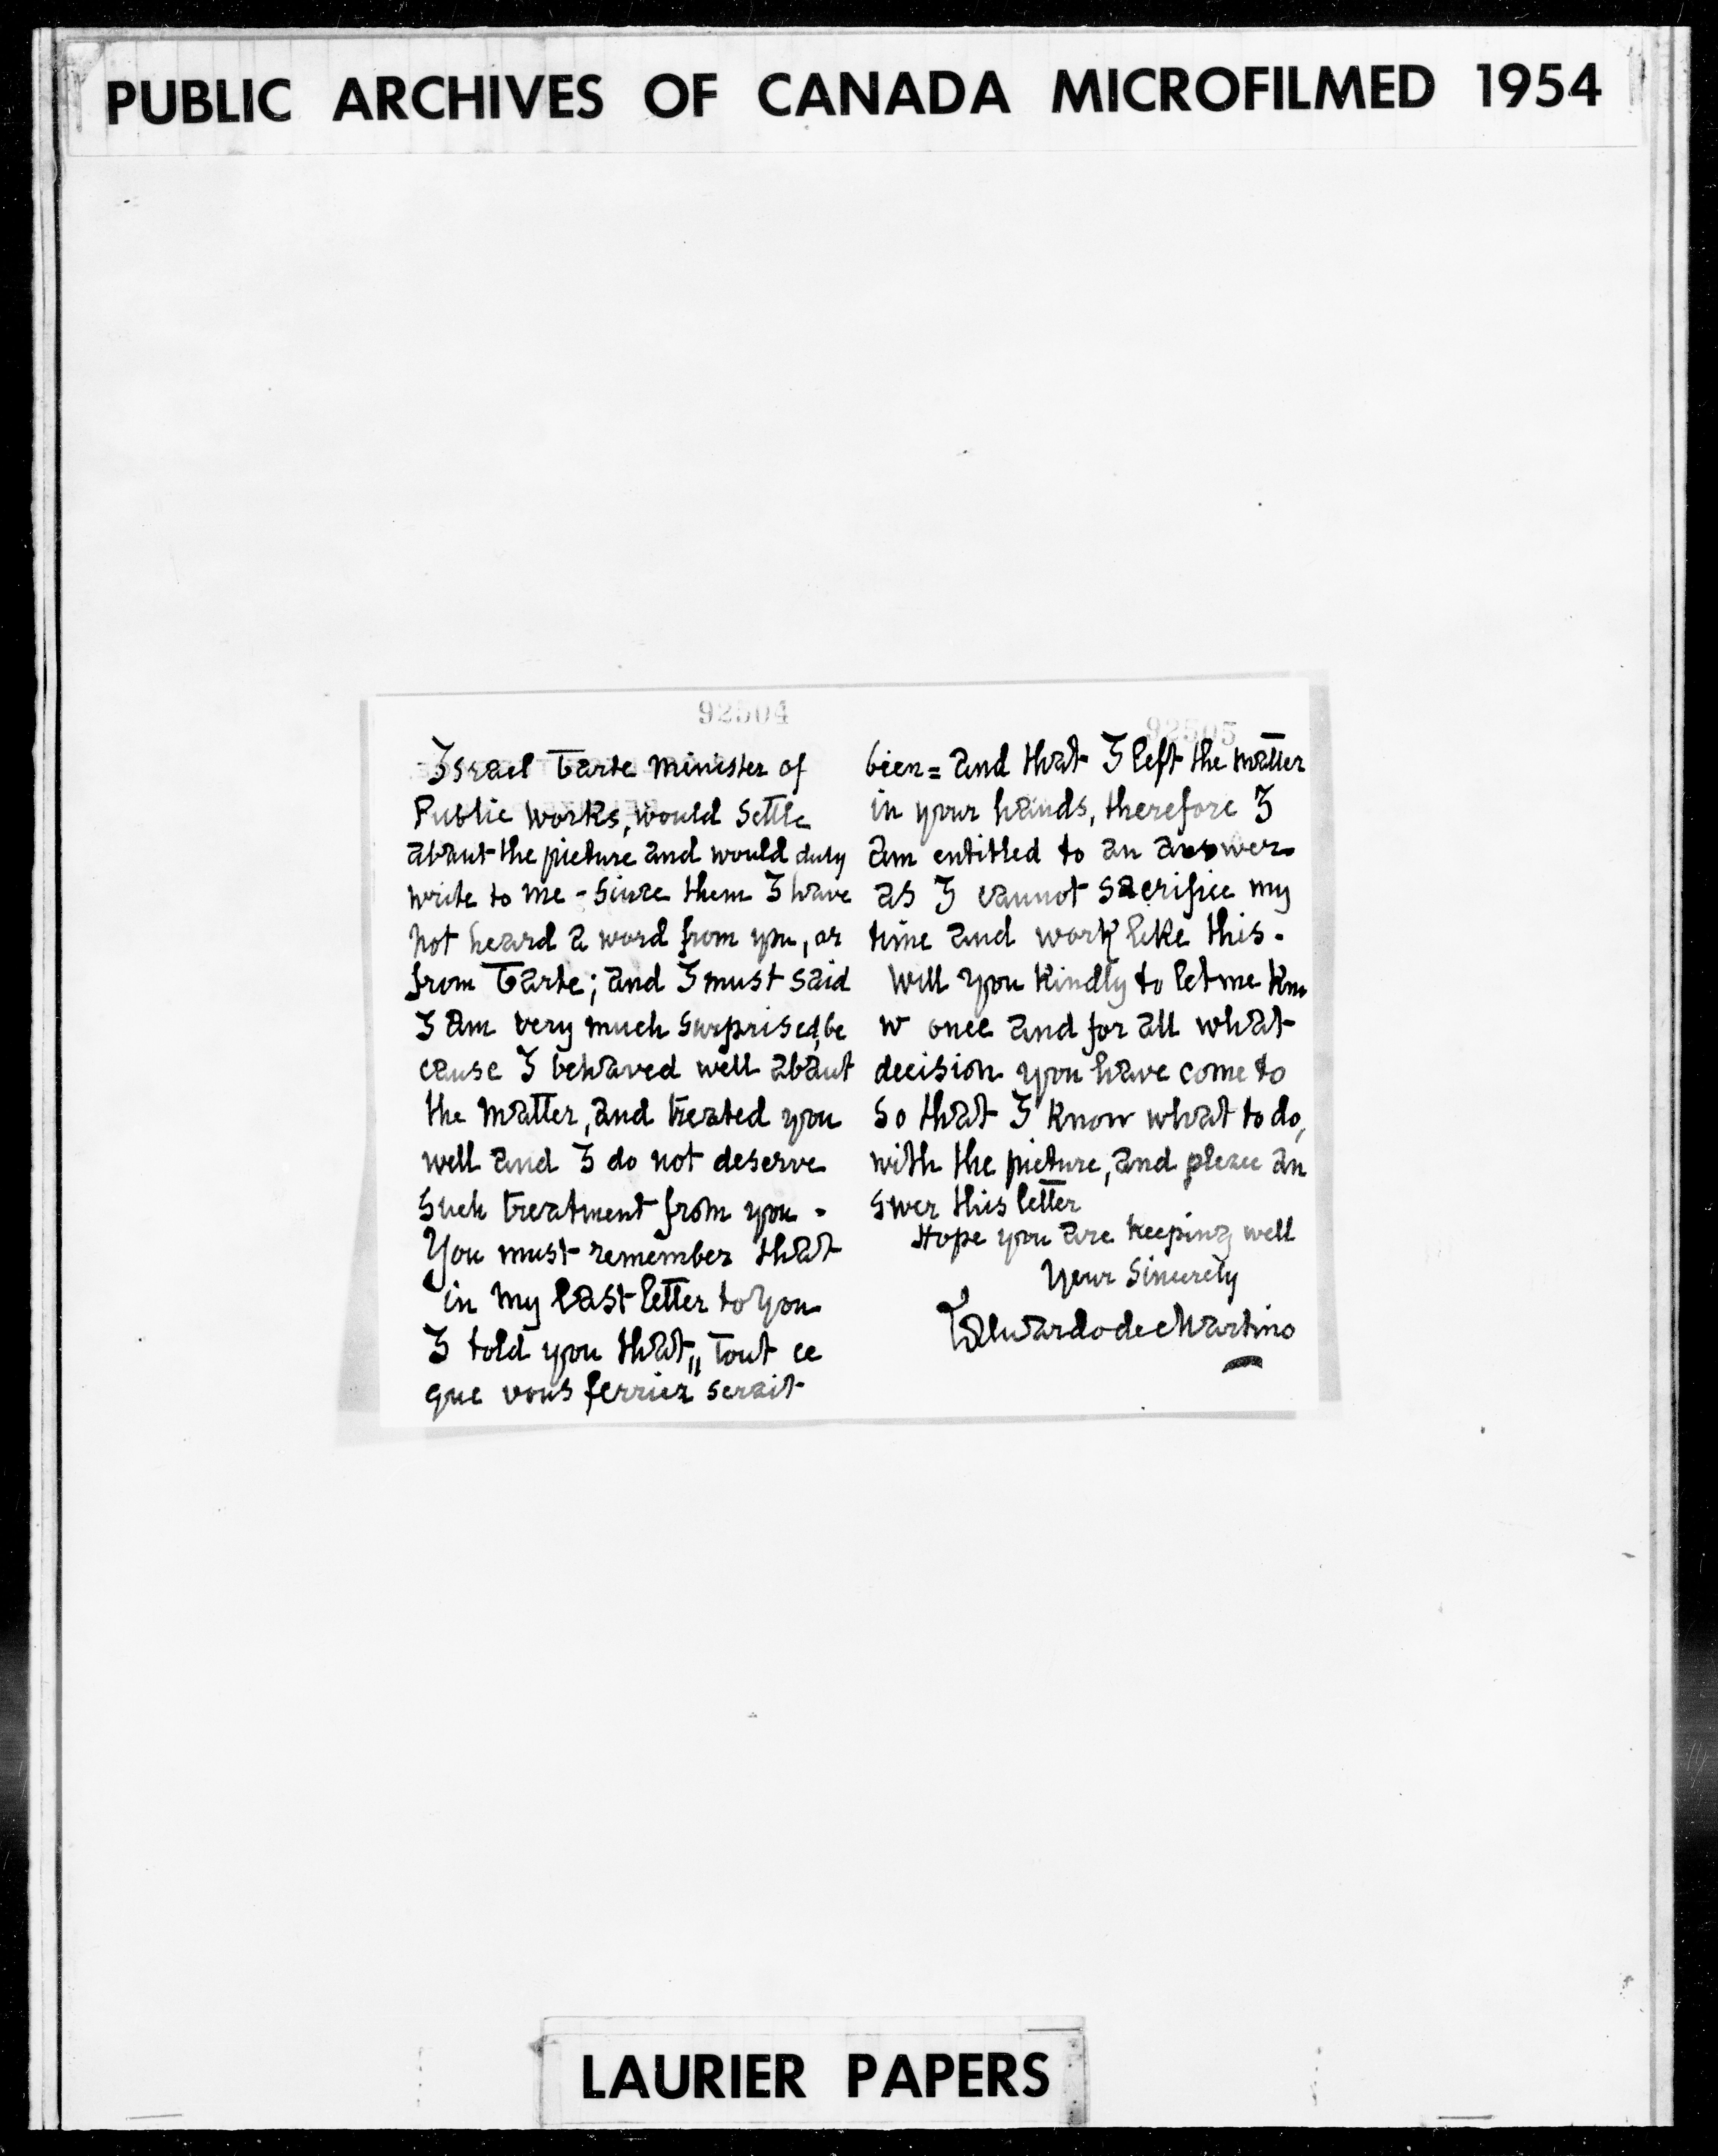 PUBLIC ARCHIVES OF CANADA MICROFILMED 1954
92504
Israel Tarte Minister of
Public Works, would settle
about the picture and would duly
write to me - Since them I have
not heard a word from you, or
from Tarte; and I must said
I am very much surprised, be
cause I behaved well about
the matter, and treated you
well and I do not deserve
such treatment from you -
You must remember that
in my last letter to you
I told you that „ Tout ce
que vous ferriez serait
92505
bien = and that I left the matter
in your hands, therefore I
am entitled to an answer
as I cannot sacrifice my
time and work like this.
Will you Kindly to let me Kno
w once and for all what
decision you have come to
so that I Know what to do,
with the picture, and please an
swer this letter
Hope you are Keeping well
Your Sincerely
Eduardo de Martino
LAURIER PAPERS